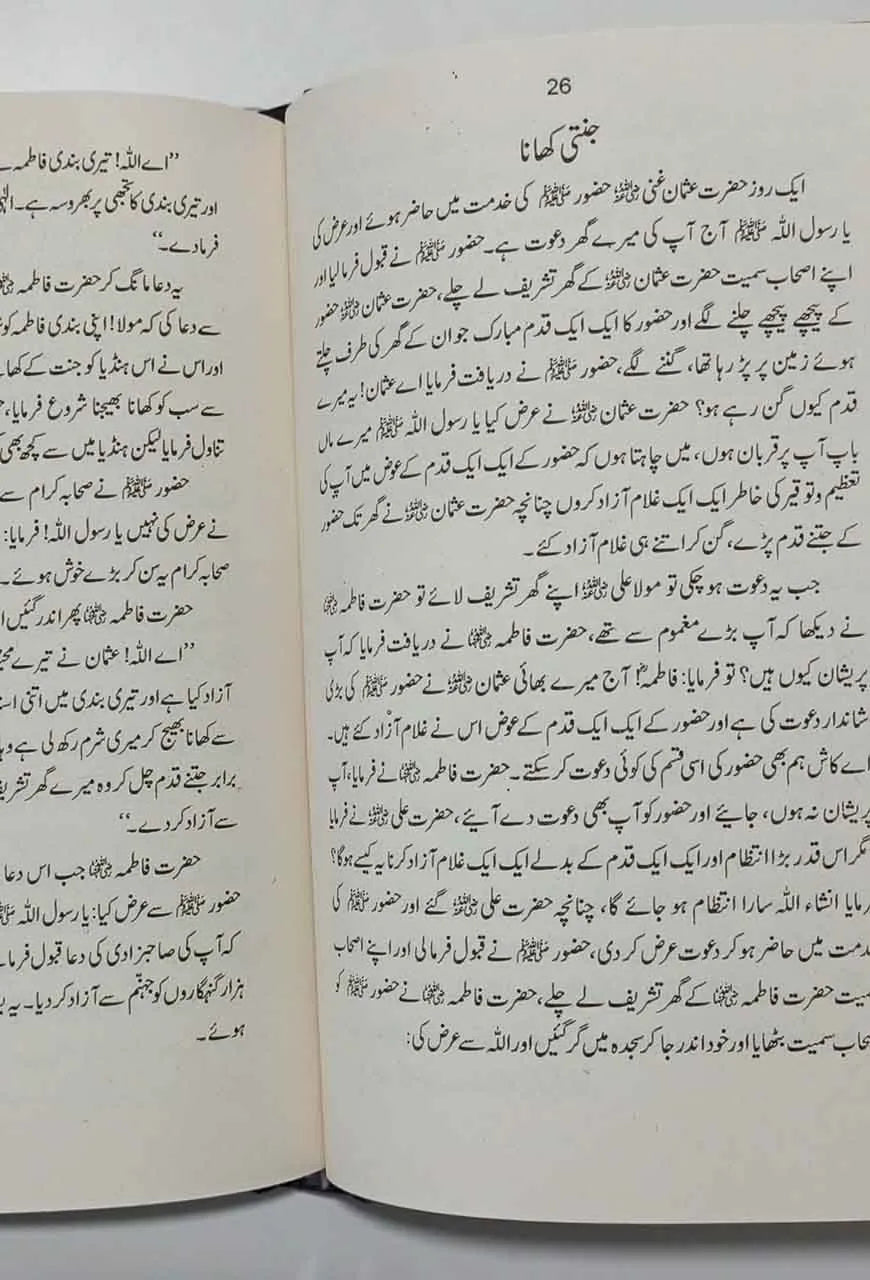 26
جنتی کھانا
ایک روز حضرت عثمان غنی رضی اللہ عنہ حضور صلی اللہ علیہ وسلم کی خدمت میں حاضر ہوئے اور عرض کی
یا رسول اللہ صلی اللہ علیہ وسلم آج آپ کی میرے گھر دعوت ہے۔ حضور صلی اللہ علیہ وسلم نے قبول فرما لیا اور
اپنے اصحاب سمیت حضرت عثمان رضی اللہ عنہ کے گھر تشریف لے چلے، حضرت عثمان رضی اللہ عنہ حضور
کے پیچھے پیچھے چلنے لگے اور حضور کا ایک ایک قدم مبارک جو ان کے گھر کی طرف چلتے
ہوئے زمین پر پڑ رہا تھا، گننے لگے، حضور صلی اللہ علیہ وسلم نے دریافت فرمایا اے عثمان! یہ میرے
قدم کیوں گن رہے ہو؟ حضرت عثمان رضی اللہ عنہ نے عرض کیا یا رسول اللہ صلی اللہ علیہ وسلم میرے ماں
باپ آپ پر قربان ہوں، میں چاہتا ہوں کہ حضور کے ایک ایک قدم کے عوض میں آپ کی
تعظیم و توقیر کی خاطر ایک ایک غلام آزاد کروں چنانچہ حضرت عثمان رضی اللہ عنہ نے گھر تک حضور
کے جتنے قدم پڑے، گن کر اتنے ہی غلام آزاد کئے۔
جب یہ دعوت ہو چکی تو مولا علی رضی اللہ عنہ اپنے گھر تشریف لائے تو حضرت فاطمہ رضی اللہ عنہا
نے دیکھا کہ آپ بڑے مغموم سے تھے، حضرت فاطمہ رضی اللہ عنہا نے دریافت فرمایا کہ آپ
پریشان کیوں ہیں؟ تو فرمایا: فاطمہؓ! آج میرے بھائی عثمان رضی اللہ عنہ نے حضور صلی اللہ علیہ وسلم کی بڑی
شاندار دعوت کی ہے اور حضور کے ایک ایک قدم کے عوض اس نے غلام آزاد کئے ہیں۔
اے کاش ہم بھی حضور کی اسی قسم کی کوئی دعوت کر سکتے۔ حضرت فاطمہ رضی اللہ عنہا نے فرمایا، آپ
پریشان نہ ہوں، جایئے اور حضور کو آپ بھی دعوت دے آیئے، حضرت علی رضی اللہ عنہ نے فرمایا
مگر اس قدر بڑا انتظام اور ایک ایک قدم کے بدلے ایک ایک غلام آزاد کرنا یہ کیسے ہوگا؟
فرمایا انشاء اللہ سارا انتظام ہو جائے گا، چنانچہ حضرت علی رضی اللہ عنہ گئے اور حضور صلی اللہ علیہ وسلم کی
خدمت میں حاضر ہو کر دعوت عرض کر دی، حضور صلی اللہ علیہ وسلم نے قبول فرما لی اور اپنے اصحاب
سمیت حضرت فاطمہ رضی اللہ عنہا کے گھر تشریف لے چلے، حضرت فاطمہ رضی اللہ عنہا نے حضور صلی اللہ علیہ وسلم کو
اصحاب سمیت بٹھایا اور خود اندر جا کر سجدہ میں گر گئیں اور اللہ سے عرض کی:
”اے اللہ! تیری بندی فاطمہ
اور تیری بندی کا تجھی پر بھروسہ ہے۔
فرما دے۔“
یہ دعا مانگ کر حضرت فاطمہ
سے دعا کی کہ مولا! اپنی بندی فاطمہ کو
اور اس نے اس ہنڈیا کو جنت کے
سے سب کو کھانا بھیجنا شروع فرمایا،
تناول فرمایا لیکن ہنڈیا میں سے کچھ بھی
حضور صلی اللہ علیہ وسلم نے صحابہ کرام سے
نے عرض کی نہیں یا رسول اللہ! فرمایا:
صحابہ کرام یہ سن کر بڑے خوش ہوئے۔
حضرت فاطمہ رضی اللہ عنہا پھر اندر گئیں
”اے اللہ! عثمان نے تیرے
آزاد کیا ہے اور تیری بندی میں اتنی
سے کھانا بھیج کر میری شرم رکھ لی ہے
برابر جتنے قدم چل کر وہ میرے گھر
سے آزاد کر دے۔“
حضرت فاطمہ رضی اللہ عنہا جب اس دعا
حضور صلی اللہ علیہ وسلم سے عرض کیا: یا رسول اللہ
کہ آپ کی صاحبزادی کی دعا قبول
ہزار گنہگاروں کو جہنم سے آزاد کر دیا۔ یہ
ہوئے۔